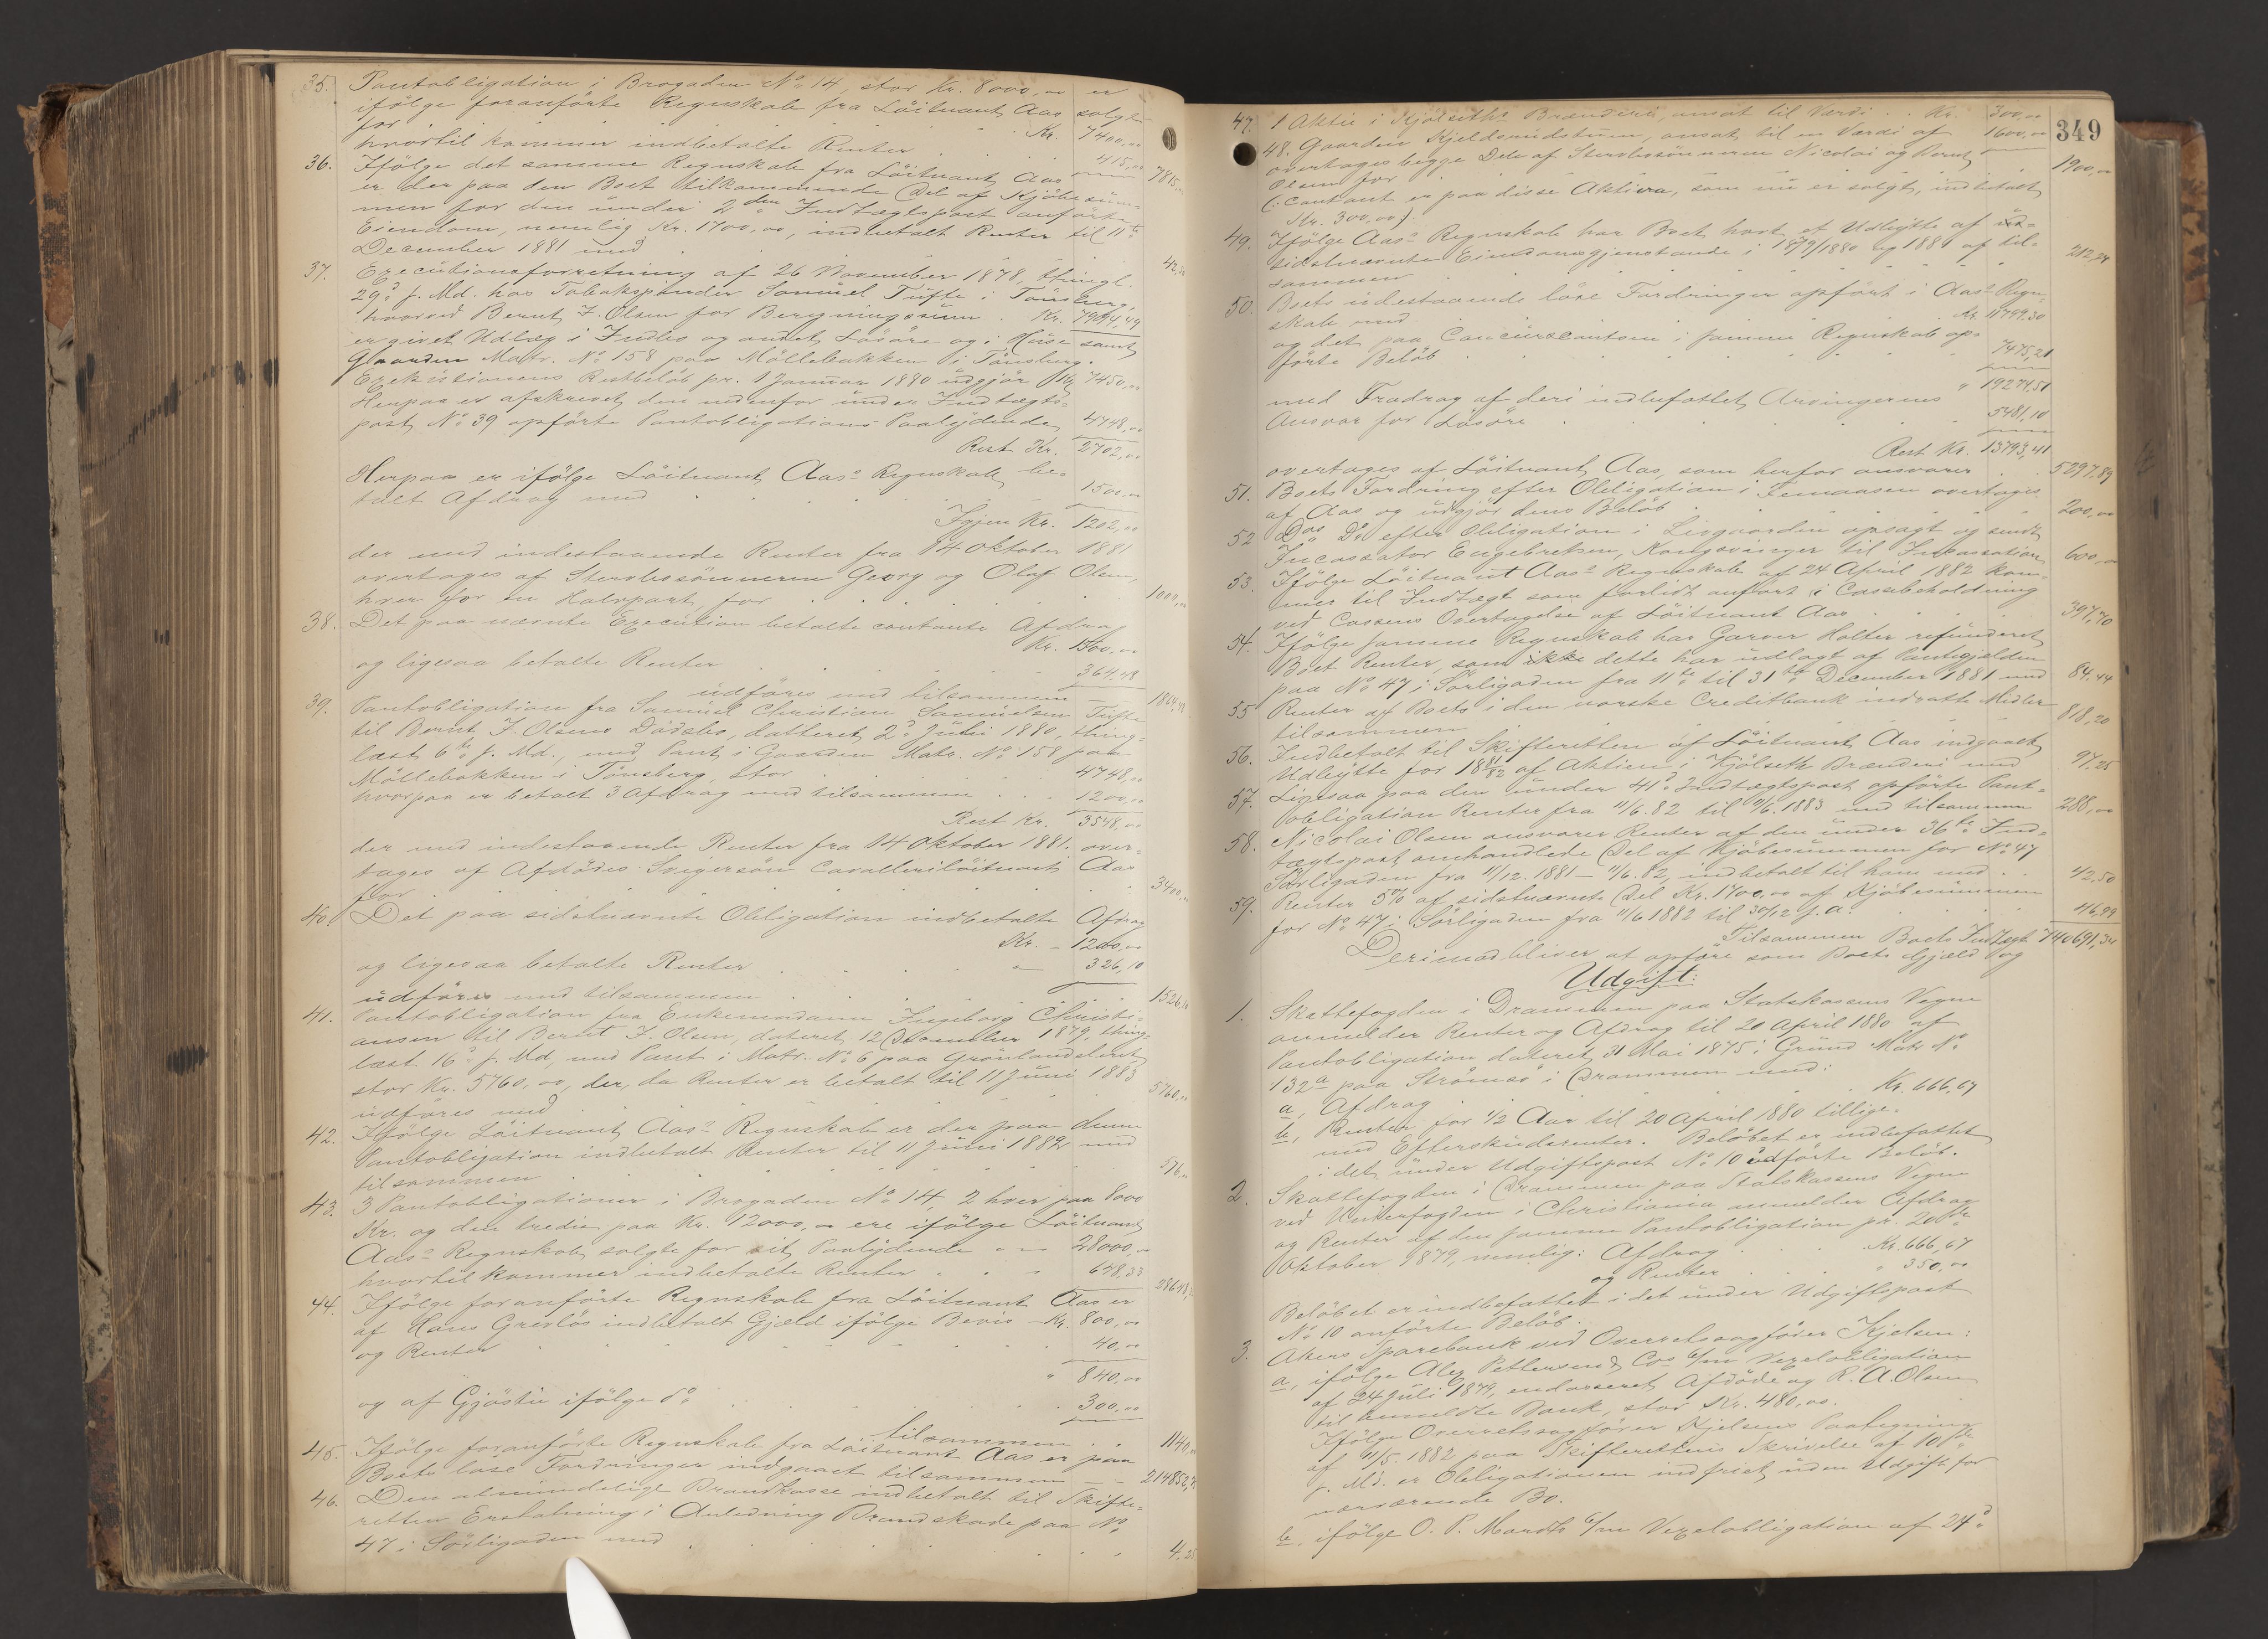 35. Pantobligation i Brogaden No 14, stor Kr. 8000,00 er
ifölge foranförte Regnskab fra Löitnant Aas solgt
for . . . Kr. 7400,00
hvortil kommer indbetalte Renter . . . 415,00 7815,00
36. Ifölge det samme Regnskab fra Löitnant Aas
er der paa den Boet tilkommende Del af Kjöbesum-
men for den under 2den Indtægtspost anförte
Eiendom, nemlig Kr. 1700,00, indbetalt Renter til 11te
December 1881 med . . . 42,50
37. Executionsforretning af 26 November 1878, thingl.
29d s. Md. hos Tobakspinder Samuel Tufte i Tönsberg,
hvorved Bernt J. Olsen for Beregningssum . Kr. 7994,49
er givet Udlæg i Indbo og andet Lösöre og i Huse samt
Gaarden Matr. No 158 paa Möllebakken i Tönsberg.
Exekutionens Restbelöb pr. 1 Januar 1880 udgjör Kr. 7450,00
Herpaa er afskrevet den nedenfor under Indtægts-
post No 39 opförte Pantobligations Paalydende 4748,00
Rest Kr. 2702,00
Herpaa er ifölge Löitnant Aas's Regnskab be-
talt Afdrag med . . . 1500,00
Igjen Kr. 1202,00
der med indestaaende Renter fra 14 Oktober 1881
overtages af Stervbosönnerne Georg og Olaf Olsen,
hver for en Halvpart for . . . 1000,00
38. Det paa nævnte Execution betalte contante Afdrag
Kr. 1500,00
og ligesaa betalte Renter . . . 364,48
udföres med tilsammen 1864,48
39. Pantobligation fra Samuel Christian Samuelsen Tufte
til Bernt J. Olsens Dödsbo, datteret 2d Juli 1880, thing-
læst 6te s. Md., med Pant i Gaarden Matr. No 158 paa
Möllebakken i Tönsberg, stor . . . 4748,00
hvorpaa er betalt 3 Afdrag med tilsammen . . . 1200,00
Rest Kr. 3548,00
der med indestaaende Renter fra 14 Oktober 1881. over-
tages af Afdödes Svigersön Cavalleriløitnant Aas
for . . . 3400,00
40. Det paa sidstnævnte Obligation indbetalte Afdrag
Kr. 1200,00
og ligesaa betalte Renter . . . 326,10
udföres med tilsammen . . . 1526,10
41. Pantobligation fra Enkemadame Ingeborg Christi-
ansen til Bernt J. Olsen, dateret 12 December 1879, thing-
læst 16d s. Md, med Pant i Matr. No 6 paa Grönlandsleret
stor Kr. 5760,00, der, da Renter er betalt til 11 Juni 1883
udföres med . . . 5760,00
42. Ifölge Löitnant Aas's Regnskab er der paa denne
Pantobligation indbetalt Renter til 11 Juni 1882 med
tilsammen . . . 576,00
43. 3 Pantobligationer i Brogaden No 14, 2 hver paa 8000
Kr. og den tredie paa Kr. 12000,00 ere ifölge Löitnant
Aas's Regnskab solgte for sit Paalydende . . . 28000,00
hvortil kommer indbetalte Renter . . . 648,33 28648,33
44. Ifölge foranförte Regnskab fra Löitnant Aas er
af Hans Grevlös indbetalt Gjæld ifölge Bevis - Kr. 800,00
og Renter . . . 40,00
" 840,00
og af Gjöstie ifölge do . . . 300,00
tilsammen . . 1140,00
45. Ifölge foranförte Regnskab fra Löitnant Aas er paa
Boets löse Fordringer indgaaet tilsammen
46. Den almindelige Brandkasse indbetalt til Skifte-
retten Erstatning i Anledning Brandskade paa No
47 i Sörligaden med . . . 4,25
349
47. 1 Aktie i Kjölseths Brænderi, ansat til Værdi . . Kr. 300,00
48. Gaarden Kjeldsrudstuen, ansat til en Værdi af 1600,00
overtages begge Dele af Stervbosönnerne Nicolai og Bernt
Olsen for . . . 1900,00
(: Contant er paa disse Aktiva, som nu er solgt, indbetalt
Kr. 300,00:)
49. Ifölge Aas's Regnskab har Boet havt et Udbytte af
sidstnævnte Eiendomsgjenstande i 1879/1880 og 1881 af til-
sammen . . . 212,24
50. Boets udestaaende löse Fordringer opfört i Aas's Regn-
skab med . . . Kr. 11799,30
og det paa Concurscontoen i samme Regnskab op-
förte Belöb . . . 7475,21
" 19274,51
med Fradrag af deri indbefattet Arvingernes
Ansvar for Lösöre . . . 5481,10
Rest Kr. 13793,41
overtages af Löitnant Aas, som herfor ansvarer . . 5297,89
51. Boets Fordring efter Obligation i Femaasen overtages
af Aas og udgjör dens Belöb . . . 200,00
52 Dos Do efter Obligation i Livgaarden opsagt og sendt
Incassator Engebretsen, Kongsvinger til Incassation 600,00
53. Ifölge Löitnant Aas's Regnskab af 24 April 1882 kom-
mes til Indtægt som forlidt anfört i Cassebeholdning
ved Cassens Overtagelse af Löitnant Aas . . . 397,70
54. Ifölge samme Regnskab har Garver Holter refunderet
Boet Renter, som ikke dette har udlagt af Pantegjælden
paa No 47 i Sörligaden fra 11te til 31te December 1881 med 84,44
55 Renter af Boets i den norske Creditbank indsatte Midler
tilsammen . . . 818,20
56. Indbetalt til Skifteretten af Löitnant Aas indgaaet
Udbytte for 1881/82 af Aktien i Kjölseth Brænderi med 97,25
57. Ligesaa paa den under 41d Indtægtspost opförte Pant-
obligation Renter fra 11/6.82 til 11/6.1883 med tilsammen 288,00
58. Nicolai Olsen ansvarer Renter af den under 36te Ind-
tægtspost omhandlede Del af Kjöbesummen for No 47
Sörligaden fra 11/12.1881 - 11/6.82, indbetalt til ham med . . 42,50
59. Renter 5% af sidstnævnte Del Kr. 1700,00 af Kjöbesummen
for No 47 i Sörligaden fra 11/6 1882 til 30/12 s. a. . . . 46,99
Tilsammen Boets Indtægt 740691,34
Derimod bliver at opföre som Boets Gjæld og
Udgift:
1. Skattefogden i Drammen paa Statskassens Vegne
anmelder Renter og Afdrag til 20 April 1880 af
Pantobligation dateret 31 Mai 1875 i Grund Matr No
132a paa Strömsö i Drammen med:
a, Afdrag . . . Kr. 666,67
b, Renter for 1/2 Aar til 20 April 1880 tillige-
med Efterskudsrenter. Belöbet er indbefattet
i det under Udgiftspost No 10 udförte Belöb.
2. Skattefogden i Drammen paa Statskassens Vegne
ved Underfogden i Christiania anmelder Afdrag
og Renter af den samme Pantobligation pr. 20de
Oktober 1879, nemlig: Afdrag . . . Kr. 666,67
og Renter . . . " 350,00
Belöbet er indbefattet i det under Udgiftspost
No 10 anförte Belöb.
3. Akers Sparebank ved Overretssagförer Kjelsen:
a, ifölge Alex Pettersen & Cos Vexelobligation
af 24 Juli 1879, endosseret Afdöde og R. A. Olsen
til anmeldte Bank, stor Kr. 480,00.
Ifölge Overretssagförer Kjelsens Paategning
af 11/5.1882 paa Skifterettens Skrivelse af 10de
s. Md. er Obligationen indfriet uden Udgift for
nærværende Bo.
b, ifölge O. P. Vexelobligation af 24d